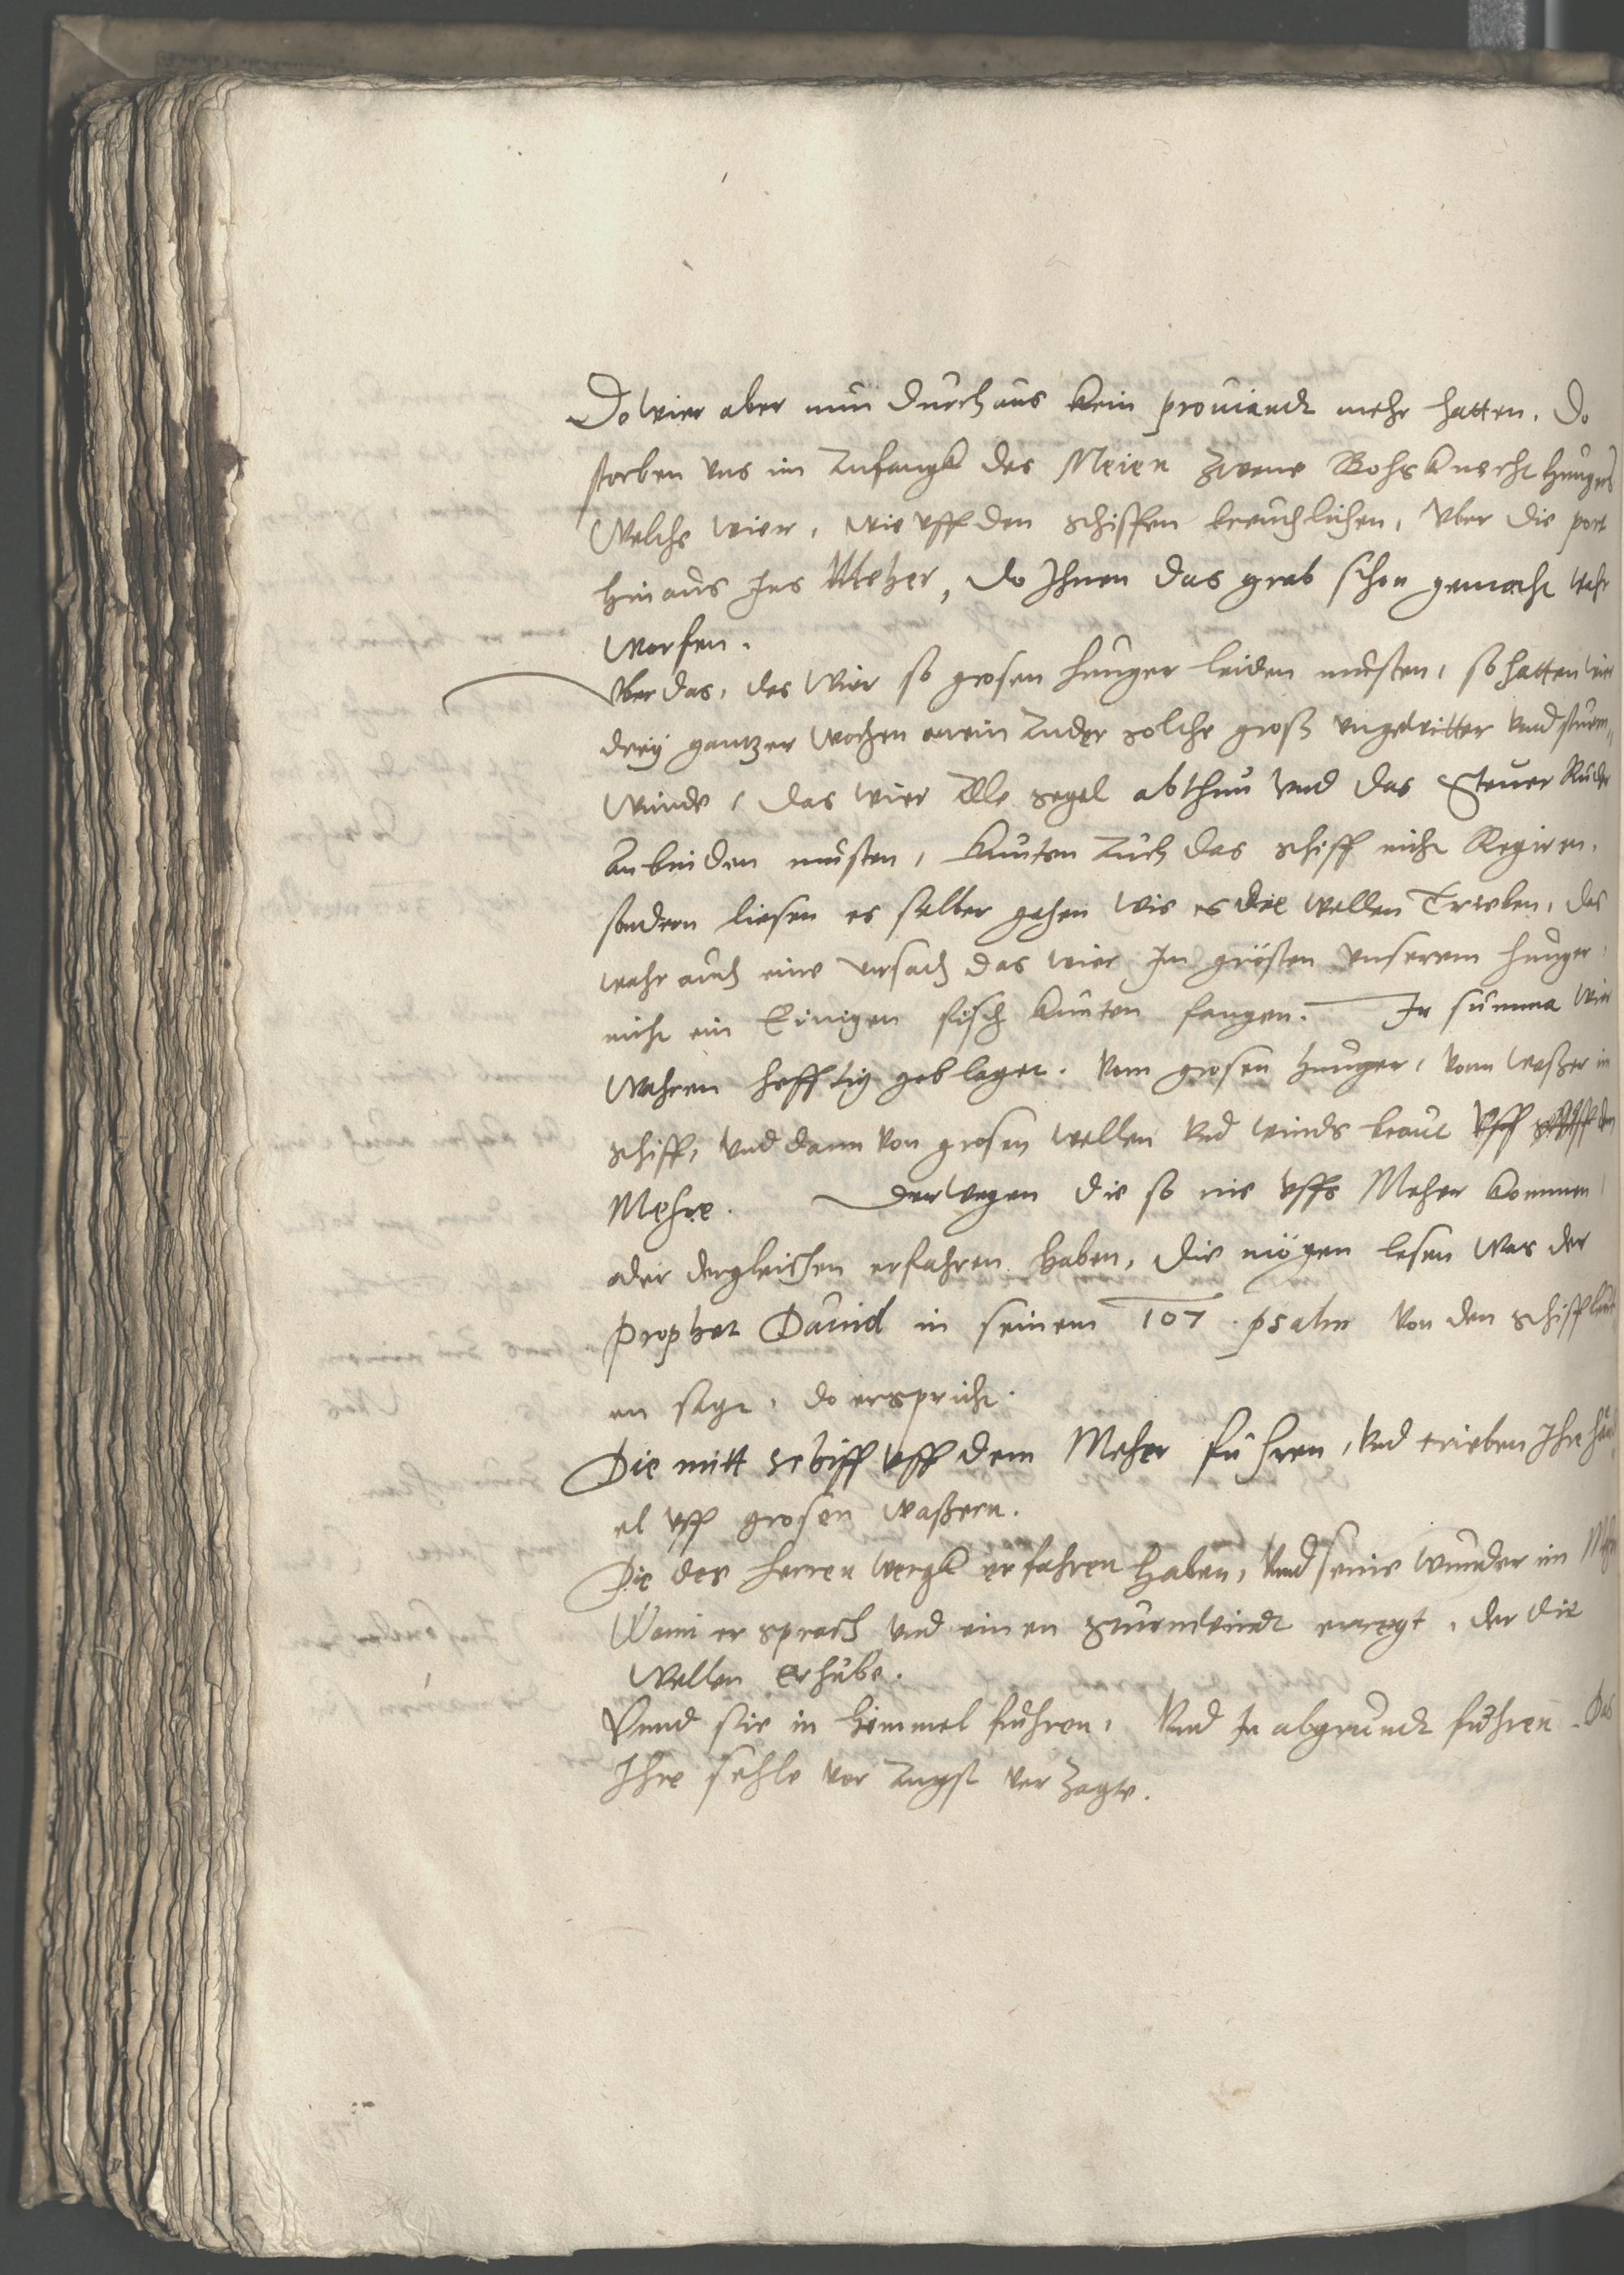 Do wier aber nun durchaus kein prouiandt mehr hatten. Do
storben vns im Anfangk des Meien zwene Bohsknecht hungers
Welche wier, wie vff den schiffen breuchlichen, vber die port
hinaus Ins Meher, do Ihnen das grab schon gemacht wahr
worfen.
Vber das, das wier so grosen hunger leiden musten, so hatten wier
dreÿ gantzer wochen an ein Ander solche groß vngewitter vnd sturm„
winde, das wier Alle segel abthun vnd das Steuer Ruder
anbinden musten, kunten Auch das schiff nicht Regiren.
sondern liesen es selber gehen wie es die wellen Trieben, das
wahr auch eine vrsach das wier Im grösten vnserem hunger
nicht ein Einigen fisch kunten fangen. In summa wier
wahren hefftig geblaget. vom grosen hunger, vom waßer in
schiff, vnd dann von grosen wellen vnd winds braut vff den
Mehre. Derwegen die so nie vffs Meher kommen,
oder dergleichen erfahren haben, die mögen lesen was der
prophet Dauid in seinem 107. psalm von den schiffleut
en sagt, do er spricht.
Die mitt schiff vff dem Meher fuhren, vnd trieben Ihr hand
el vff grosen waßern.
Die des herren wergk erfahren haben, vnd seine wunder im Mehr
Wenn er sprach vnd einen sturmwindt erregt, der die
wellen erhube.
Vnnd sie in himmel fuhren, vnd In abgrundt fuhren. Das
Ihre sehle vor Angst verzagte.